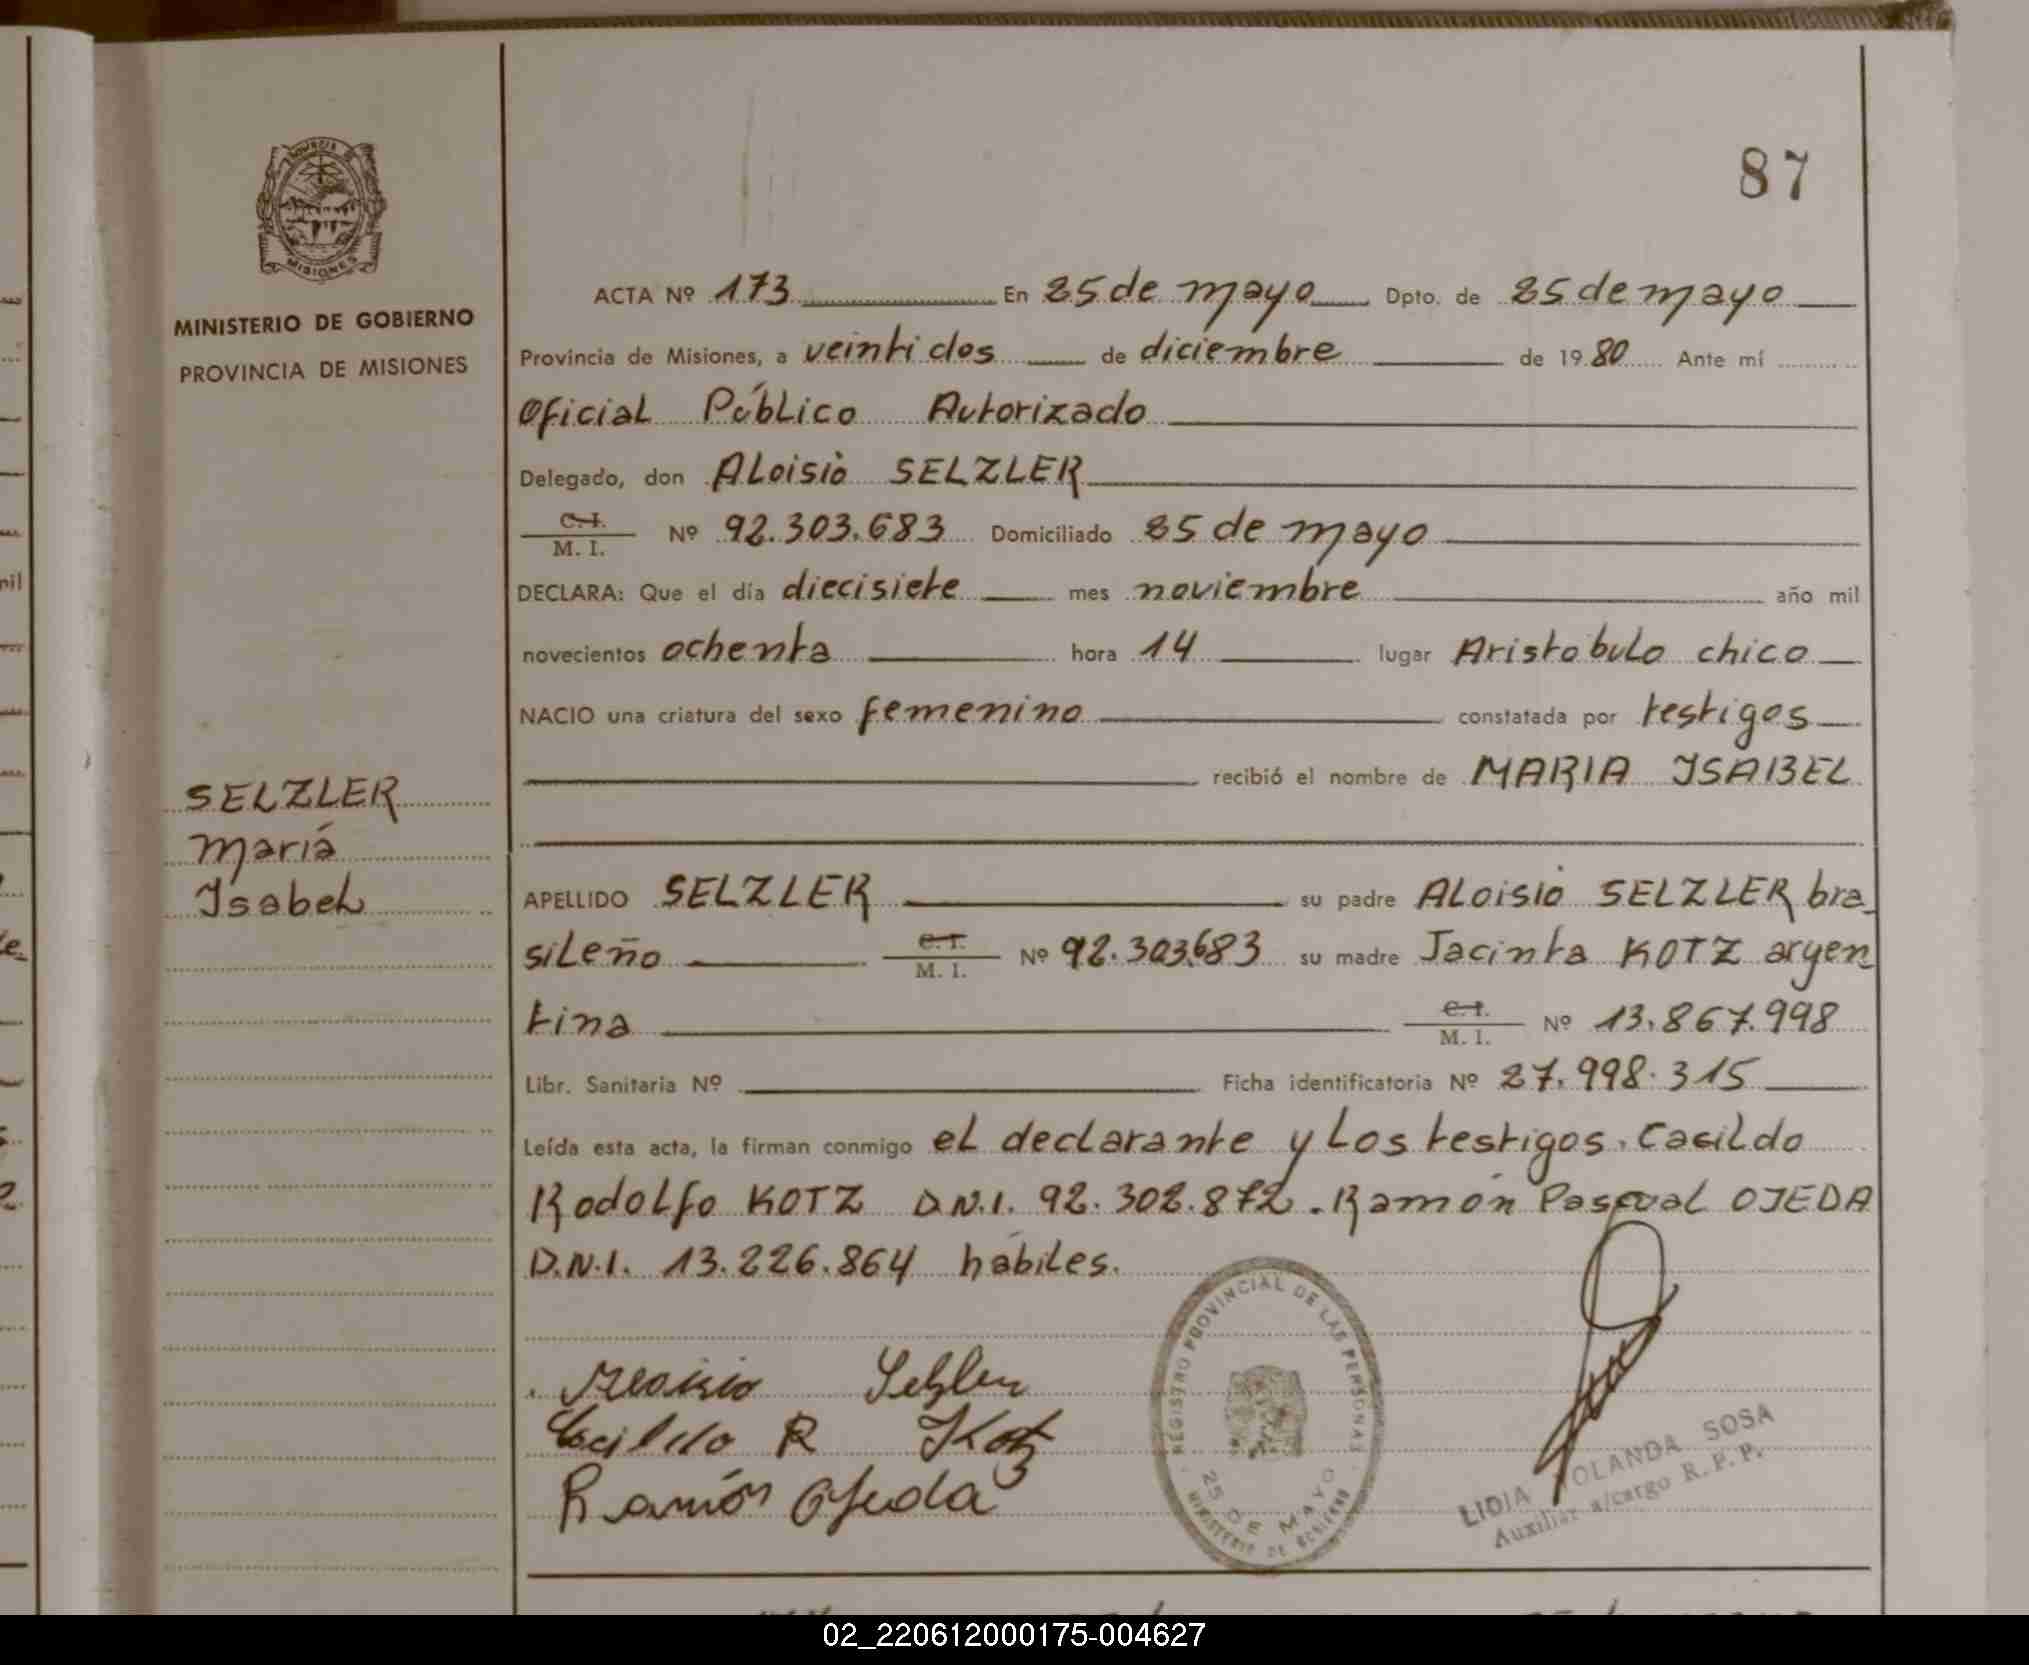 87
MINISTERIO DE GOBIERNO
PROVINCIA DE MISIONES
SELZLER
Mariá
Isabel
ACTA Nº 173 En 25 de mayo Dpto. de 25 de mayo
Provincia de Misiones, a veinti dos de diciembre de 1980 Ante mí
Oficial Público Autorizado
Delegado, don Aloisio SELZLER
C.I.
M. I. Nº 92.303.683 Domiciliado 25 de mayo
DECLARA: Que el día diecisiete mes noviembre año mil
novecientos ochenta hora 14 lugar Aristobulo chico
NACIO una criatura del sexo femenino constatada por testigos
recibió el nombre de MARIA ISABEL
APELLIDO SELZLER su padre Aloisio SELZLER bra-
sileño C.I. M. I. Nº 92.303.683 su madre Jacinta KOTZ argen
tina C.I. M. I. Nº 13.867.998
Libr. Sanitaria Nº Ficha identificatoria Nº 27.998.315
Leída esta acta, la firman conmigo el declarante y los testigos. Casildo
Rodolfo KOTZ D.N.I. 92.302.872. Ramón Pascual OJEDA
D.N.I. 13.226.864 hábiles.
Aloisio Selzler
Casildo R Kotz
Ramón Ojeda
REGISTRO PROVINCIAL DE LAS PERSONAS
25 DE MAYO
MINISTERIO DE GOBIERNO
LIDIA YOLANDA SOSA
Auxiliar a/cargo R. P. P.
02_220612000175-004627